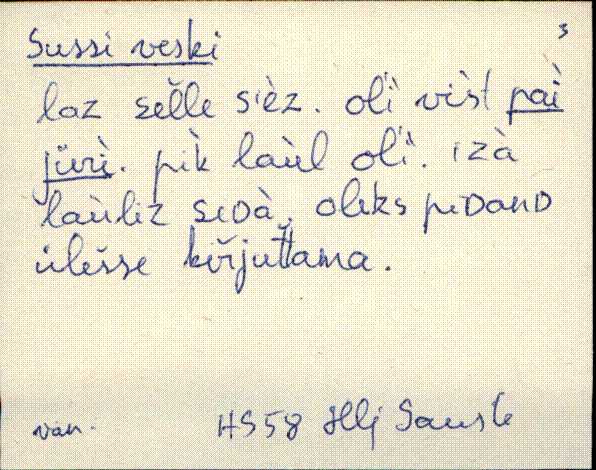 3
Sussi veski
laz sel̆le s'èz. ol'ì vìst paì
jürì. pìk laùl ol'ì. izà
laùliz seDà. oleks piDanD
ülešse kir̆jut̆tama.
van. HS58 Hlj Saus